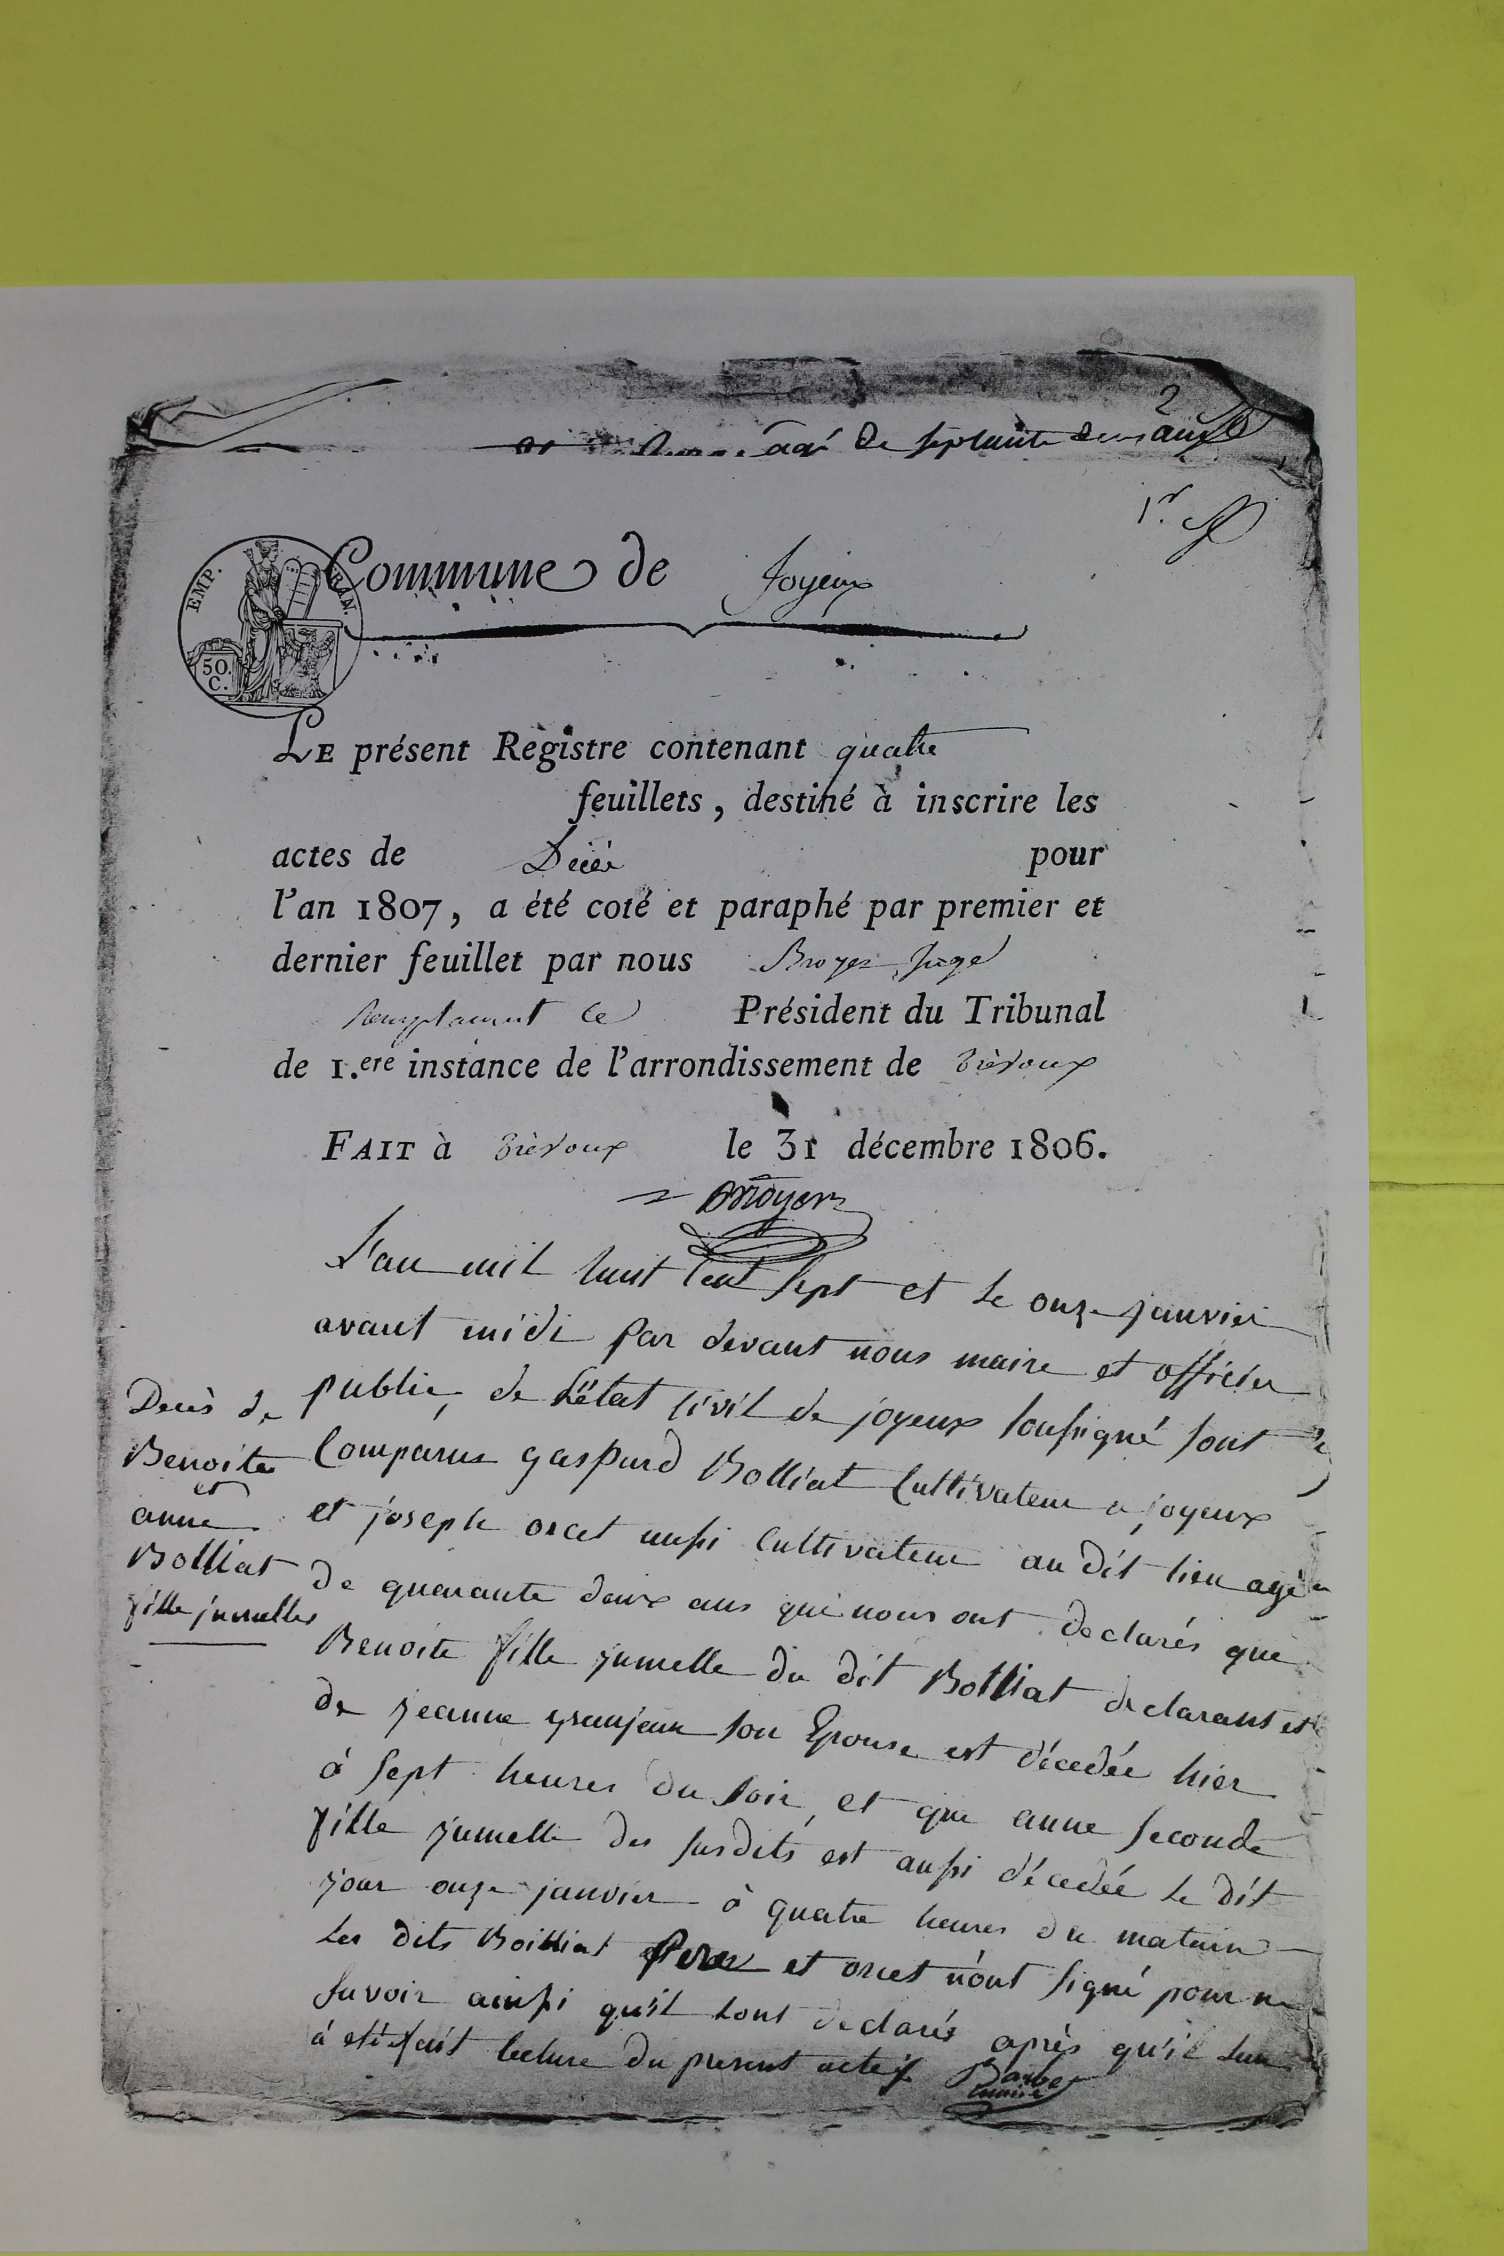 2
agé de septante deux ans
1.r
EMP. FRAN.
50. C.
Commune de Joyeux
LE présent Registre contenant quatre
feuillets, destiné à inscrire les
actes de Décès pour
l'an 1807, a été coté et paraphé par premier et
dernier feuillet par nous Broyer juge
Remplacant le Président du Tribunal
de 1.ere instance de l'arrondissement de Trévoux
FAIT à Trévoux le 31 décembre 1806.
Broyer
L'an mil huit cent sept et le onze janvier
avant midi par devant nous maire et officier
public, de L'état civil de joyeux soussigné sont
Comparus gaspard Bolliat Cultivateur a joyeux
et joseph orcet aussi Cultivateur au dit lieu agé
de quarante deux ans qui nous ont declarés que
Benoite fille jumelle du dit Bolliat declarant et
de jeanne granjean son Epouse est décedée hier
à sept heures du soir, et que anne seconde
fille jumelle des susdits est aussi décedée le dit
jour onze janvier à quatre heures du matin
Les dits Boilliat pere et orcet n'ont signé pour ne
savoir ainsi qu'il lont declarés après qu'il leur
à été fait lecture du present acte
Barbet
maire
Decès de
Benoite
et
anne
Bolliat
fille jumelles